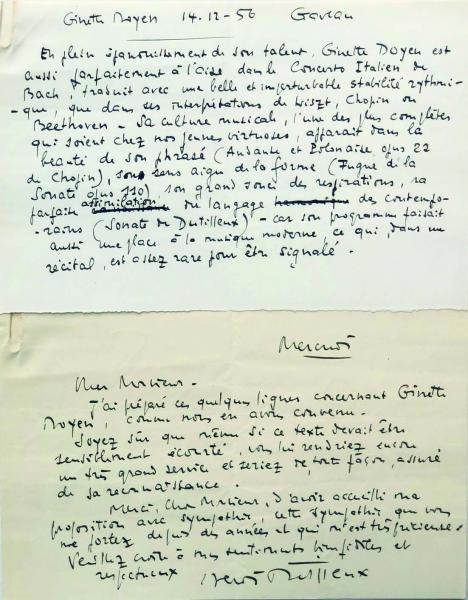 Ginette Doyen 14-12-56 Gaveau
En plein épanouissement de son talent, Ginette Doyen est
aussi parfaitement à l'aise dans le Concerto Italien de
Bach, traduit avec une belle et imperturbable stabilité rythmi-
-que, que dans ses interprétations de Liszt, Chopin ou
Beethoven - Sa culture musicale, l'une des plus complètes
qui soient chez nos jeunes virtuoses, apparaît dans la
beauté de son phrasé (Andante et Polonaise, opus 22
de Chopin), son sens aigu de la forme (Fugue de la
Sonate opus 110), son grand souci des respirations, sa
parfaite assimilation du langage des contempo-
-rains (Sonate de Dutilleux) - car son programme faisait
aussi une place à la musique moderne, ce qui, dans un
récital, est assez rare pour être signalé.
Mercredi
Cher Monsieur -
J'ai préparé ces quelques lignes concernant Ginette
Doyen, comme nous en avons convenu.
Soyez sûr que même si ce texte devait être
sensiblement écourté, vous lui rendriez encore
un très grand service et seriez de toute façon, assuré
de sa reconnaissance.
Merci, Cher Monsieur, d'avoir accueilli ma
proposition avec sympathie, cette sympathie que vous
me portez depuis des années et qui m'est très précieuse.
Veuillez croire à mes sentiments et
respectueux Henri Dutilleux